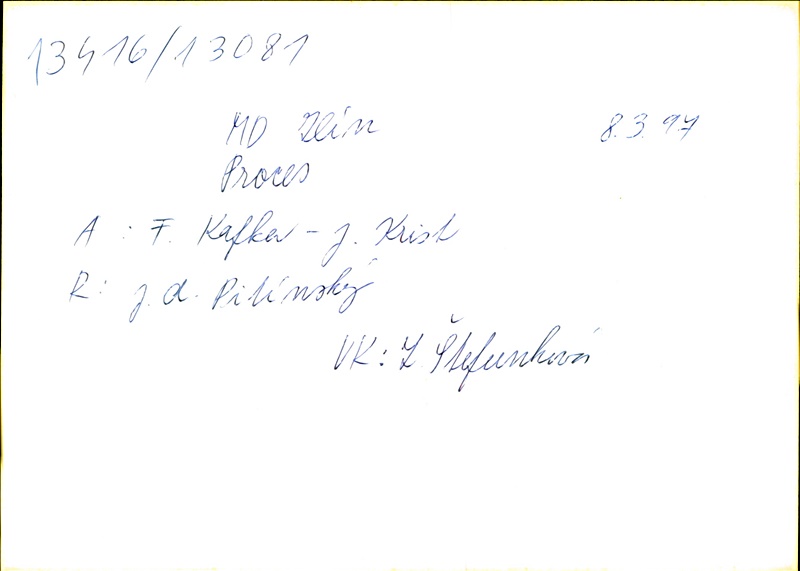 13416/13081
MD Zlín 8.3.97
Proces
A : F. Kafka - J. Krist
R: J. A. Pitínský
VK: Z. Štefunková